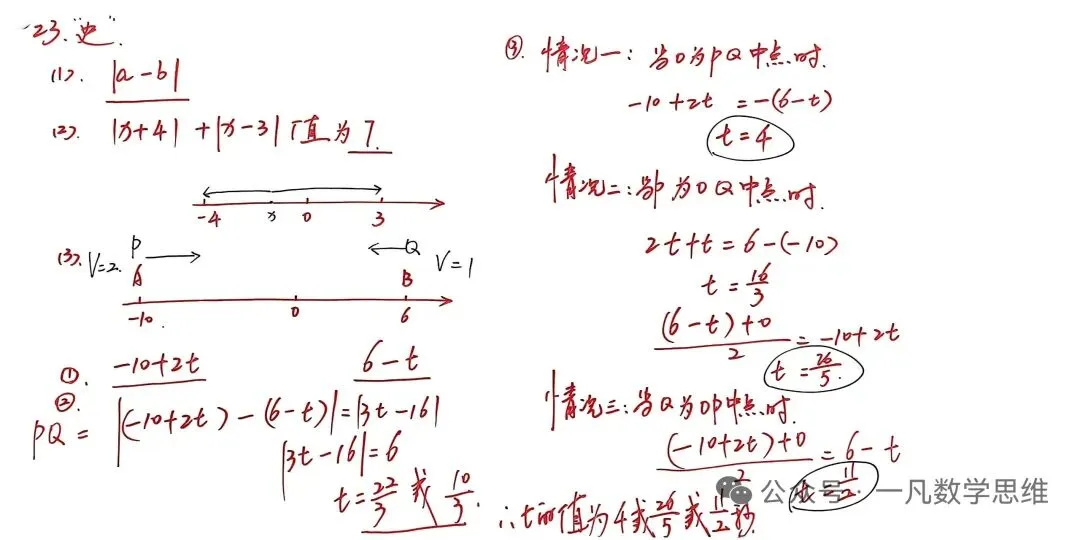 23. "史".
(1). |a-b|
(2). |x+4| + |x-3| 值为 7.
-4 x 0 3
(3). V=2. P Q V=1
A B
-10. 0 6
①. -10+2t 6-t
②.
PQ = |(-10+2t) - (6-t)| = |3t-16|
|3t-16| = 6
t = 22/3 或 10/3.
③. 情况一: 当O为PQ中点时.
-10+2t = -(6-t)
t=4
情况二: 当P为OQ中点时.
2t+t = 6-(-10)
t = 16/3
(6-t)+0/2 = -10+2t
t = 26/5.
情况三: 当Q为OP中点时.
(-10+2t)+0/2 = 6-t
t = 11/2
∴t的值为4或26/5或11/2秒.
公众号 · 一凡数学思维